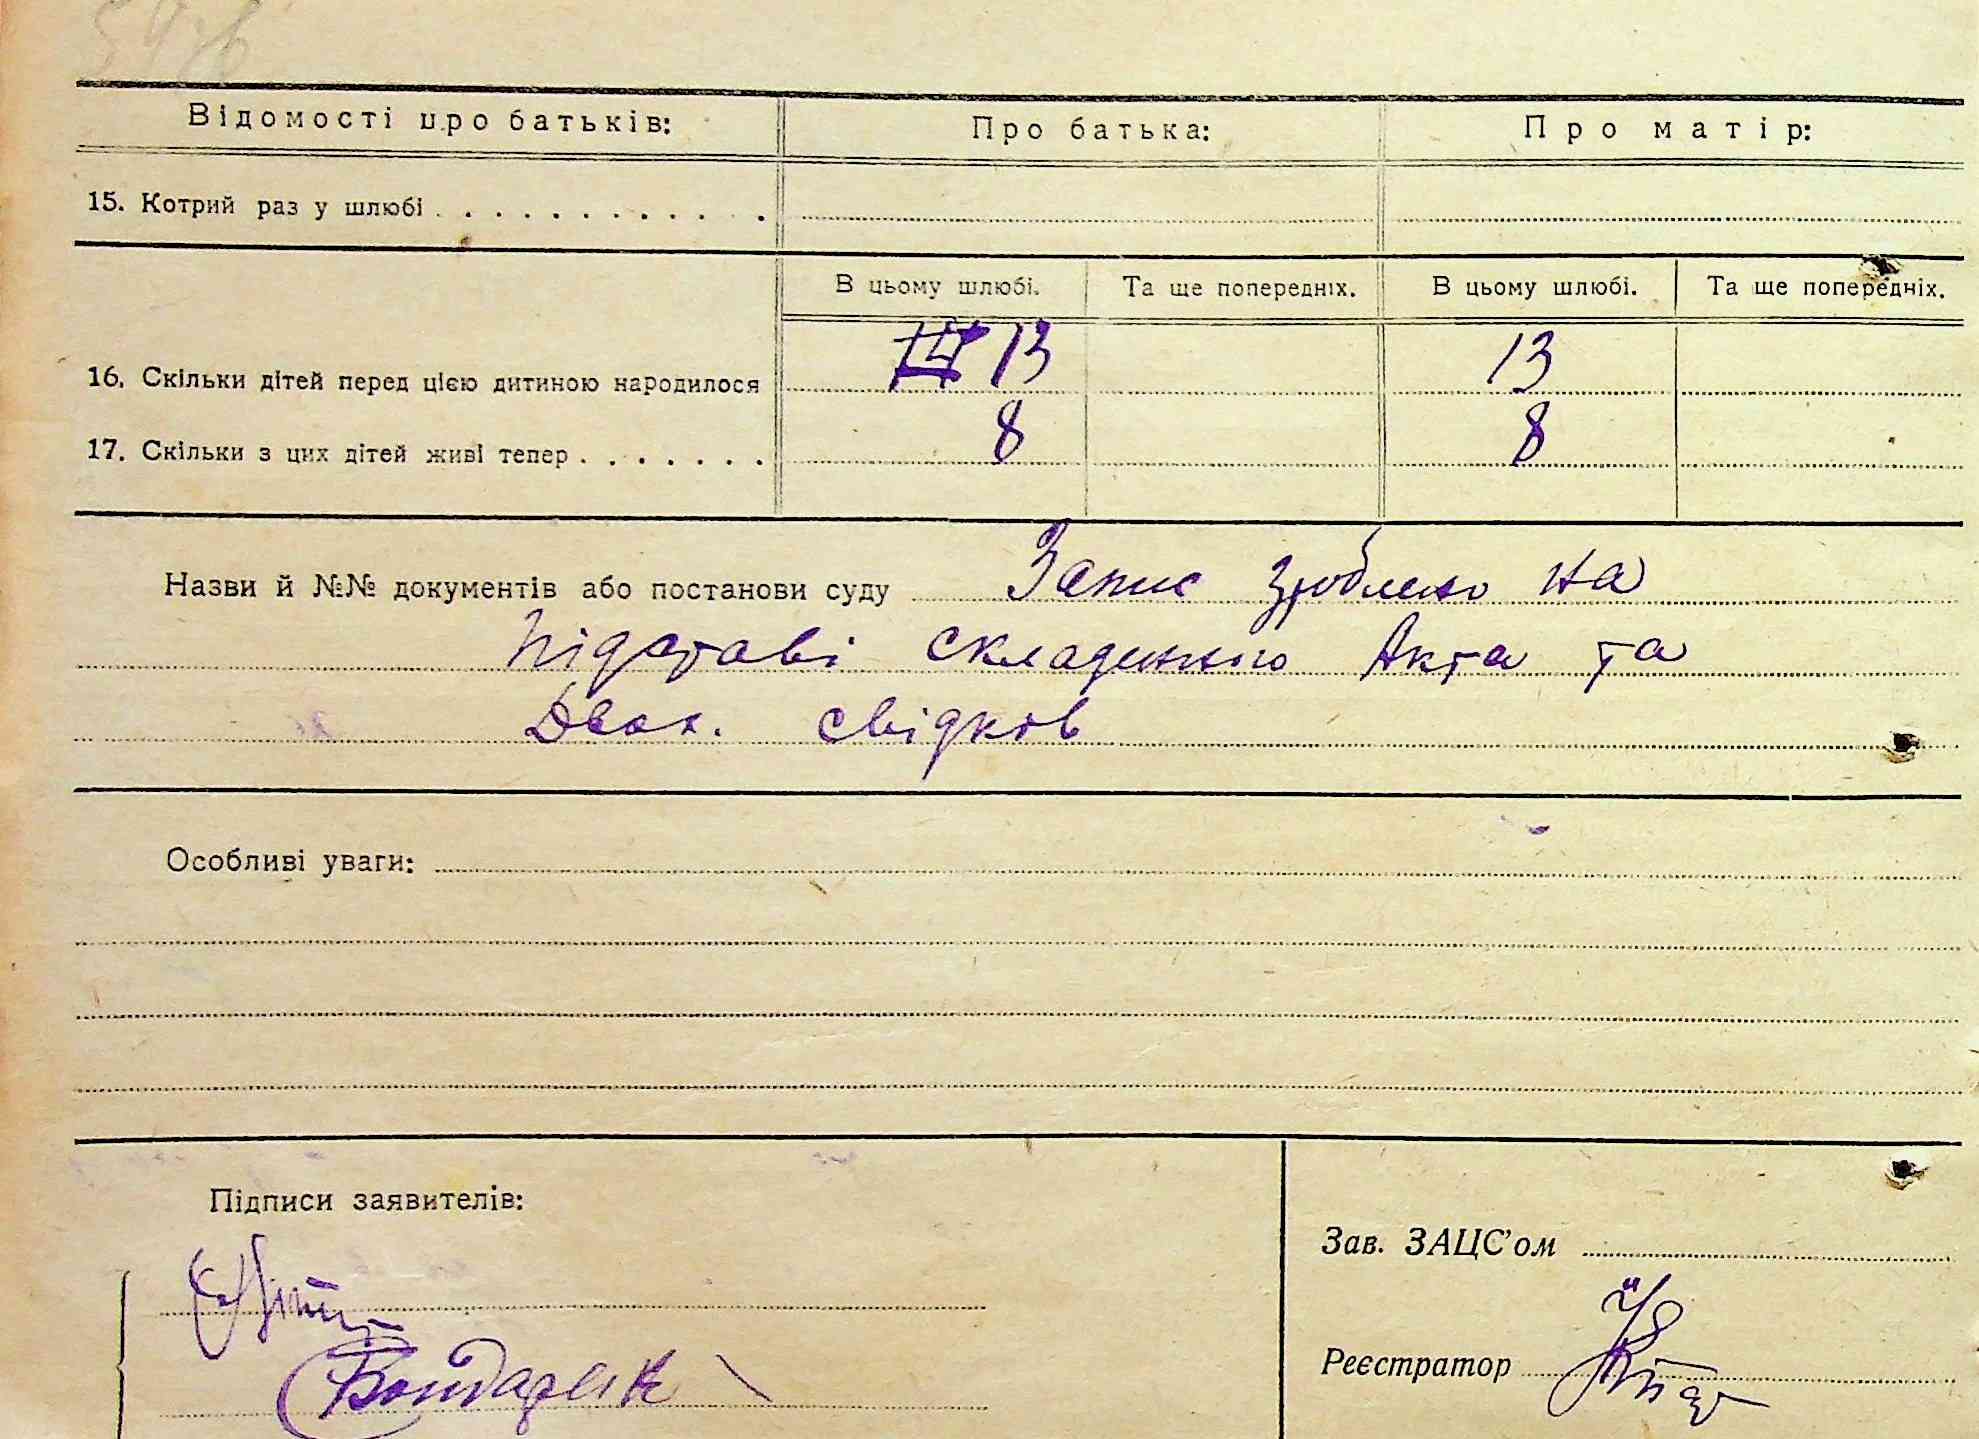 Відомості про батьків: Про батька: Про матір:
15. Котрий раз у шлюбі . . . . . . . . . . . .
В цьому шлюбі. Та ще попередніх. В цьому шлюбі. Та ще попередніх.
16. Скільки дітей перед цією дитиною народилося 13 13
17. Скільки з цих дітей живі тепер . . . . . . . 8 8
Назви й №№ документів або постанови суду Запис зроблено на
підставі складенного Акта та
Двох. свідків
Особливі уваги:
Підписи заявителів:
Зав. ЗАЦС’ом
Реєстратор
Бондарик